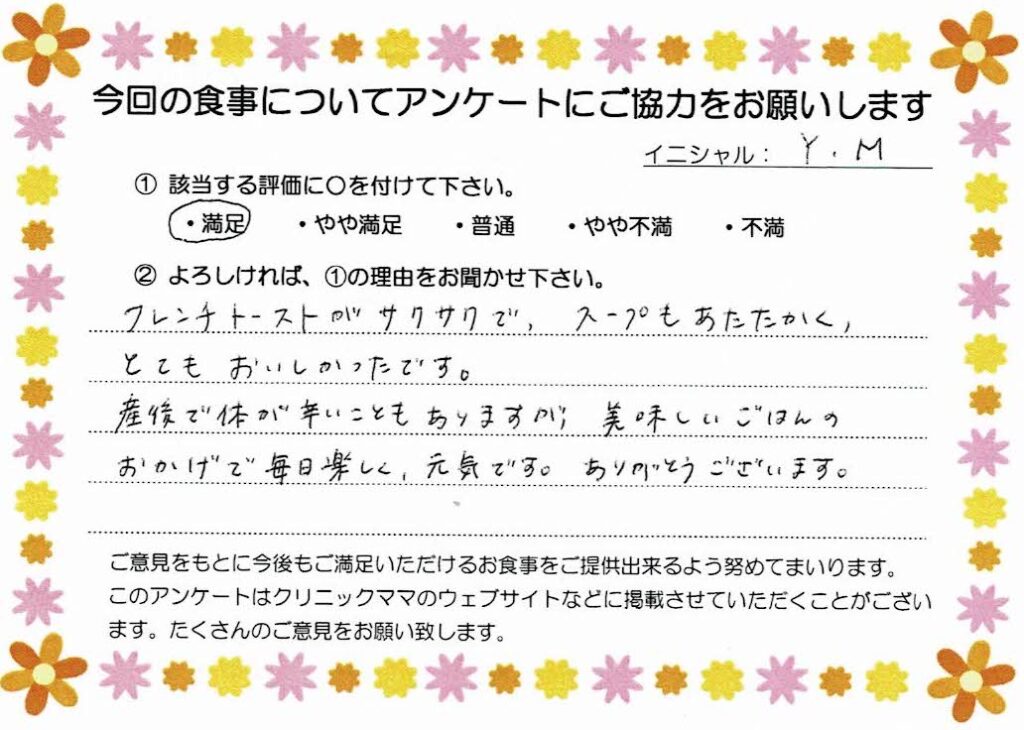 今回の食事についてアンケートにご協力をお願いします
イニシャル： Y.M
① 該当する評価に○を付けて下さい。
・満足　・やや満足　・普通　・やや不満　・不満
② よろしければ、①の理由をお聞かせ下さい。
フレンチトーストがサクサクで、スープもあたたかく、
とてもおいしかったです。
産後で体が辛いこともありますが、美味しいごはんの
おかげで毎日楽しく、元気です。ありがとうございます。
ご意見をもとに今後もご満足いただけるお食事をご提供出来るよう努めてまいります。
このアンケートはクリニックママのウェブサイトなどに掲載させていただくことがござい
ます。たくさんのご意見をお願い致します。